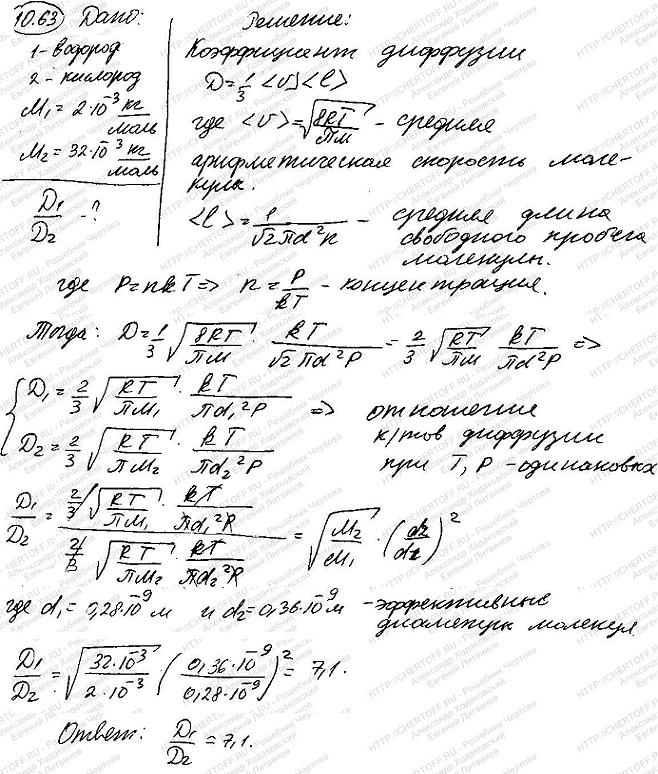 10.63 Дано:
1 - водород
2 - кислород
M₁ = 2·10⁻³ кг/моль
M₂ = 32·10⁻³ кг/моль
D₁/D₂ - ?
Решение:
Коэффициент диффузии
D = 1/3 <υ><l>
где <υ> = √(8RT/πM) - средняя
арифметическая скорость моле-
кулы.
<l> = 1/(√2 πd²n) - средняя длина
свободного пробега
молекулы.
где P = nkT => n = P/kT - концентрация.
Тогда: D = 1/3 √(8RT/πM) · kT/(√2 πd²P) = 2/3 √(RT/πM) · kT/(πd²P) =>
D₁ = 2/3 √(RT/πM₁) · kT/(πd₁²P)
D₂ = 2/3 √(RT/πM₂) · kT/(πd₂²P)
=> отношение
к/тов диффузии
при T, P - одинаковых
D₁/D₂ = (2/3 √(RT/πM₁) · kT/(πd₁²P)) / (2/3 √(RT/πM₂) · kT/(πd₂²P)) = √(M₂/M₁) · (d₂/d₁)²
где d₁ = 0,28·10⁻⁹ м и d₂ = 0,36·10⁻⁹ м - эффективные
диаметры молекул
D₁/D₂ = √(32·10⁻³/2·10⁻³) (0,36·10⁻⁹/0,28·10⁻⁹)² = 7,1.
Ответ: D₁/D₂ = 7,1.
HTTP://CHERTOFF.RU - Решебник Чертова